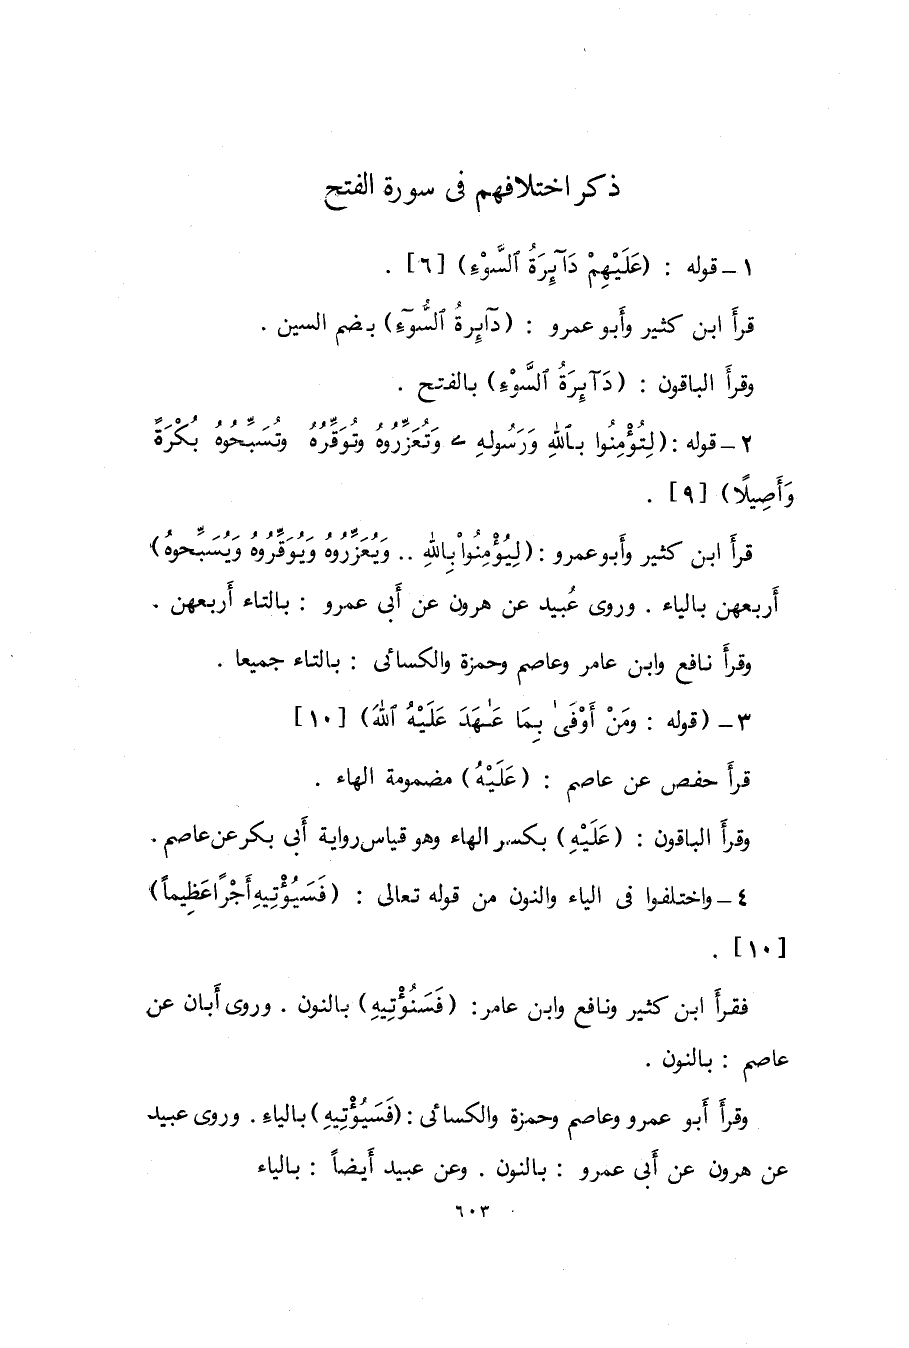 ذكر اختلافهم فى سورة الفتح
١ – قوله : (عَلَيْهِمْ دَآئِرَةُ ٱلسَّوْءِ) [٦] .
قرأ ابن كثير وأبو عمرو : (دَآئِرةُ ٱلسُّوٓءِ) بضم السين .
وقرأ الباقون : (دَآئِرَةُ ٱلسَّوْءِ) بالفتح .
٢ – قوله : (لِتُؤْمِنُوا بٱللهِ وَرَسُولهِ ے وَتُعَزِّرُوهُ وتُوَقِّرُهُ وتُسَبِّحُوهُ بُكْرَةً
وَأَصِيلًا) [٩] .
قرأ ابن كثير وأبو عمرو : (لِيُؤْمِنُواْ بِاللهِ .. وَيُعَزِّرُوهُ وَيُوَقِّرُوهُ وَيُسَبِّحوهُ)
أربعهن بالياء . وروى عُبيد عن هرون عن أبى عمرو : بالتاء أربعهن .
وقرأ نافع وابن عامر وعاصم وحمزة والكسائى : بالتاء جميعا .
٣ – (قوله : ومَنْ أَوْفَىٰ بِمَا عَـٰهَدَ عَلَيْهُ ٱللهَ) [١٠]
قرأ حفص عن عاصم : (عَلَيْهُ) مضمومة الهاء .
وقرأ الباقون : (عَلَيْهِ) بكسر الهاء وهو قياس رواية أبى بكر عن عاصم .
٤ – واختلفوا فى الياء والنون من قوله تعالى : (فَسَيُؤْتِيهِ أَجْرًا عَظِيماً)
[١٠] .
فقرأ ابن كثير ونافع وابن عامر : (فَسَنُؤْتِيهِ) بالنون . وروى أبان عن
عاصم : بالنون .
وقرأ أبو عمرو وعاصم وحمزة والكسائى : (فَسَيُؤْتِيهِ) بالياءِ . وروى عبيد
عن هرون عن أبى عمرو : بالنون . وعن عبيد أيضاً : بالياء
٦٠٣